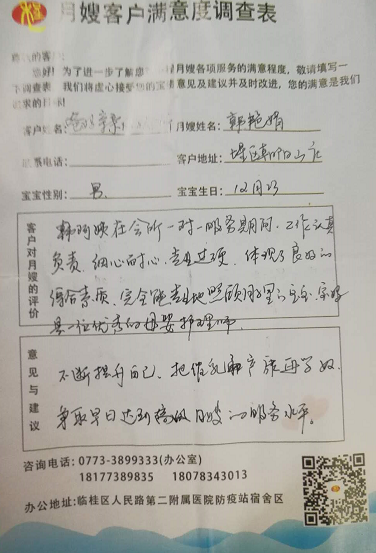 月嫂客户满意度调查表
的客户:
您好!为了进一步了解您 月嫂各项服务的满意程度,敬请填写一
下调查表 我们将虚心接受您的宝 意见及建议并及时改进,您的满意是我们
求的目标!
客户姓名: 月嫂姓名:韩艳娟
联系电话: 客户地址:
宝宝性别:男 宝宝生日:12月23
客户对月嫂的评价
韩阿姨在会所一对一服务期间,工作认真
负责,细心耐心,专业过硬,体现了良好的
综合素质,完全能专业地照顾
是一位优秀的母婴护理师
意见与建议
不断提升自己,把催乳和产康再学好,
争取早日达到高级月嫂的服务水平。
咨询电话:0773-3899333(办公室)
18177389835 18078343013
办公地址:临桂区人民路第二附属医院防疫站宿舍区